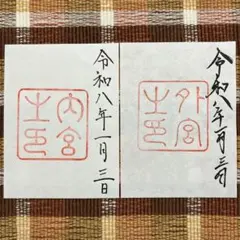 内宮
之印
令和八年一月三日
外宮
之印
令和八年一月三日